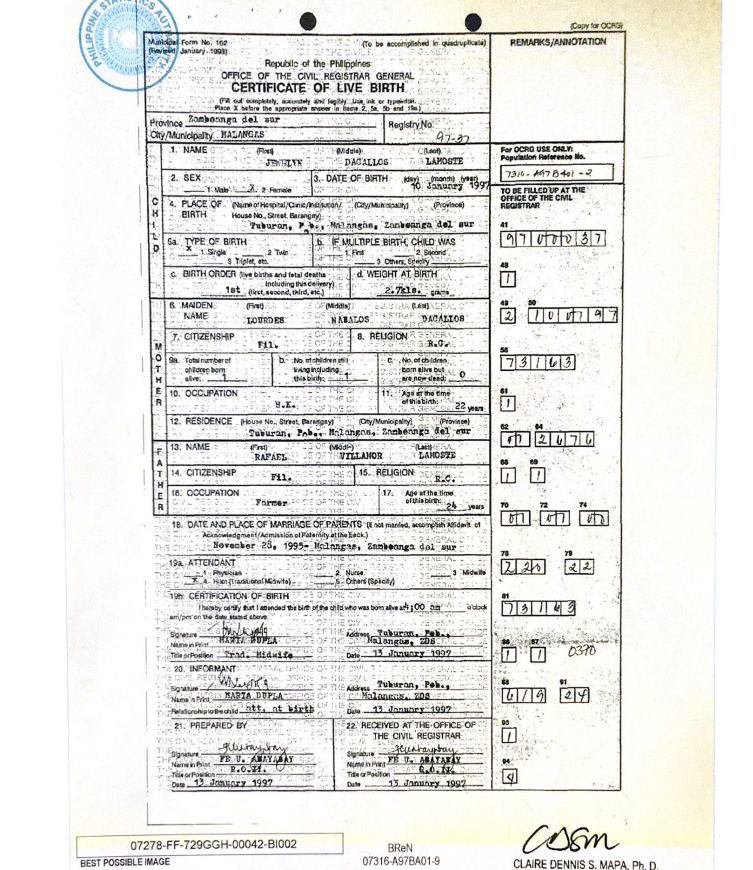 PHILIPPINE STATISTICS AUTHORITY
(Copy for OCRG)
Municipal Form No. 102
(Revised January 1993)
(To be accomplished in quadruplicate)
REMARKS/ANNOTATION
Republic of the Philippines
OFFICE OF THE CIVIL REGISTRAR GENERAL
CERTIFICATE OF LIVE BIRTH
(Fill out completely, accurately and legibly. Use ink or typewriter.
Place X before the appropriate answer in items 2, 5a, 5b and 19a.)
Province Zamboanga del sur
Registry No. 97-37
City/Municipality MALANGAS
For OCRG USE ONLY:
Population Reference No.
7316-A97B401-2
TO BE FILLED UP AT THE
OFFICE OF THE CIVIL
REGISTRAR
CHILD
1. NAME (First) (Middle) (Last)
DACALLOS LAMOSTE
2. SEX
1 Male X 2 Female
3. DATE OF BIRTH (day) (month) (year)
10 January 1997
4. PLACE OF BIRTH (Name of Hospital/Clinic/Institution/ (City/Municipality) (Province)
House No., Street, Barangay)
Tuburan, Pob., Malangas, Zamboanga del sur
41
9700037
5a. TYPE OF BIRTH
X 1 Single 2 Twin
3 Triplet, etc.
b. IF MULTIPLE BIRTH, CHILD WAS
1 First 2 Second
3 Others, Specify
c. BIRTH ORDER (live births and fetal deaths
including this delivery)
1st (first, second, third, etc.)
d. WEIGHT AT BIRTH
2.7kls. grams
48
1
49 50
2 100197
MOTHER
6. MAIDEN NAME (First) (Middle) (Last)
LOURDES NABALOS DACALLOS
7. CITIZENSHIP
Fil.
8. RELIGION
R.C.
9a. Total number of
children born
alive: 1
b. No. of children still
living including
this birth: 1
c. No. of children
born alive but
are now dead: 0
55
73163
10. OCCUPATION
H.K.
11. Age at the time
of this birth:
22 years
61
1
12. RESIDENCE (House No., Street, Barangay) (City/Municipality) (Province)
Tuburan, Pob., Malangas, Zamboanga del sur
62 64
FATHER
13. NAME (First) (Middle) (Last)
RAFAEL VILLANOR LAMOSTE
14. CITIZENSHIP
Fil.
15. RELIGION
R.C.
68 69
1 1
16. OCCUPATION
Farmer
17. Age at the time
of this birth:
24 years
70 72 74
18. DATE AND PLACE OF MARRIAGE OF PARENTS (If not married, accomplish Affidavit of
Acknowledgment/Admission of Paternity at the back.)
November 28, 1995- Malangas, Zamboanga del sur
76 79
22
19a. ATTENDANT
1 Physician 2 Nurse 3 Midwife
X 4 Hilot (Traditional Midwife) 5 Others (Specify)
19b. CERTIFICATION OF BIRTH
I hereby certify that I attended the birth of the child who was born alive at 1:00 am o'clock
am/pm on the date stated above.
81
73163
Signature
Name in Print MARIA DUPLA
Title or Position Trad. Midwife
Address Tuburan, Pob.,
Malangas, ZDS
Date 13 January 1997
86 87
1 1 0370
20. INFORMANT
Signature
Name in Print MARIA DUPLA
Relationship to the child att. at birth
Address Tuburan, Pob.,
Malangas, ZDS
Date 13 January 1997
88 91
619 24
21. PREPARED BY
Signature
Name in Print FE U. AWAYAWAY
Title or Position
Date 13 January 1997
22. RECEIVED AT THE OFFICE OF
THE CIVIL REGISTRAR
Signature
Name in Print FE U. AWAYAWAY
Title or Position
Date 13 January 1997
93
1
94
07278-FF-729GGH-00042-BI002
BEST POSSIBLE IMAGE
BReN
07316-A97BA01-9
CLAIRE DENNIS S. MAPA, Ph. D.